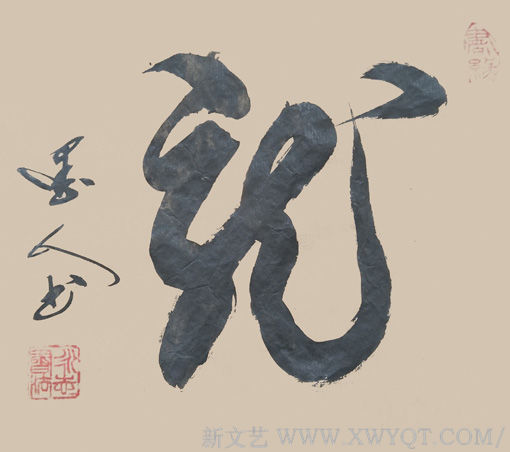 龍
墨人书
新文艺 WWW.XWYQT.COM/